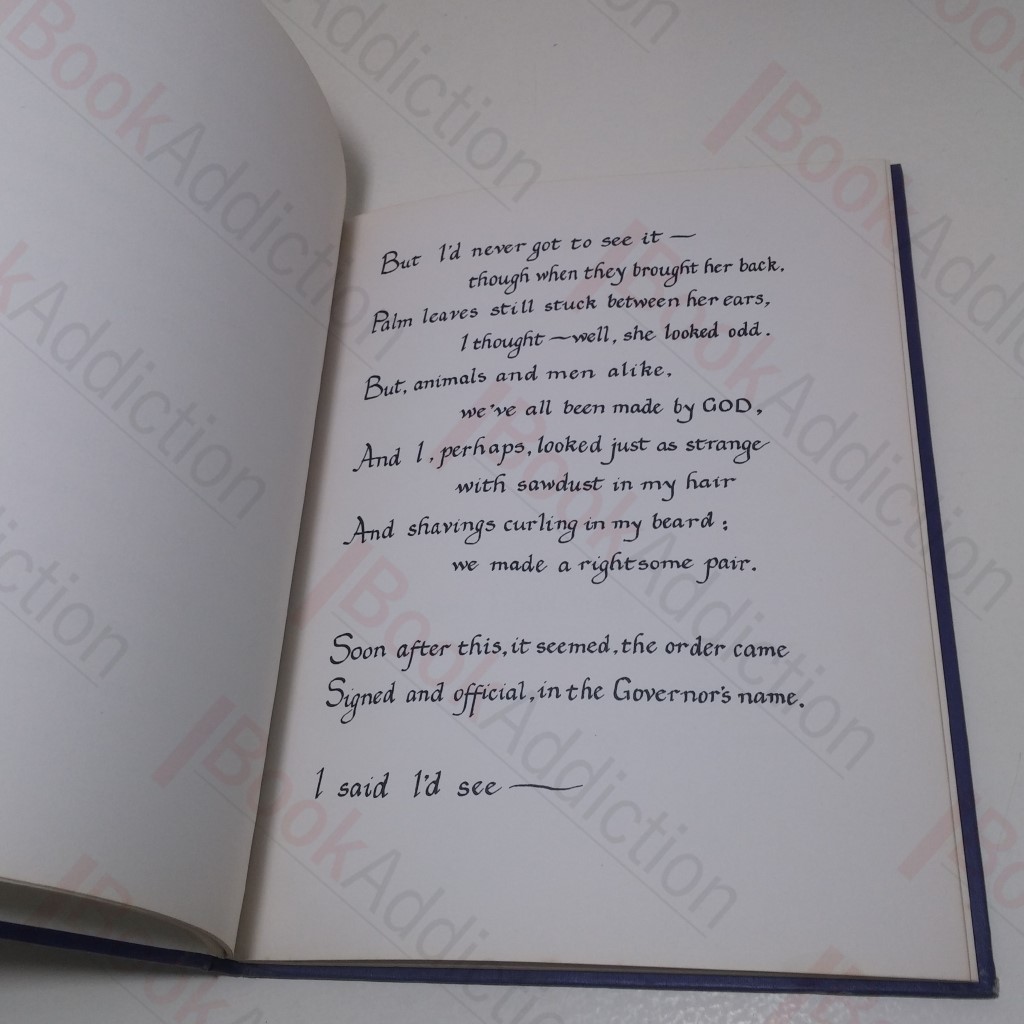 But I'd never got to see it —
though when they brought her back,
Palm leaves still stuck between her ears,
I thought — well, she looked odd.
But, animals and men alike,
we've all been made by GOD,
And I, perhaps, looked just as strange
with sawdust in my hair
And shavings curling in my beard:
we made a rightsome pair.
Soon after this, it seemed, the order came
Signed and official, in the Governor's name.
I said I'd see —
BookAddiction